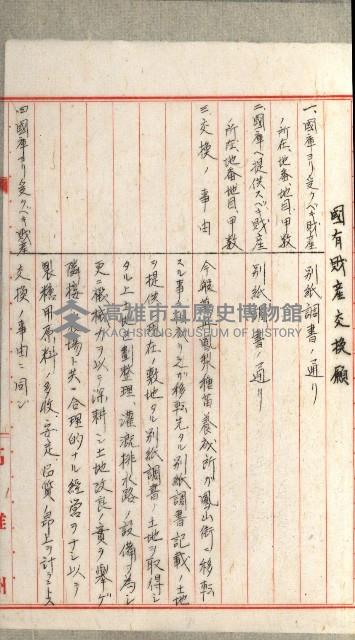 國有財産交換願
一、國庫ヨリ受クベキ財産
ノ所在、地番地目、甲数
別紙調書ノ通リ
二、國庫ヘ提供スベキ財産
ノ所在、地番地目、甲数
別紙調書ノ通リ
三、交換ノ事由
鳳梨種苗養成所ガ鳳山街ニ移転
スル移転先タル別紙調書記載ノ土地
ヲ提供シ現在ノ敷地タル別紙調書ノ土地ヲ取得シ
タル上整理、灌漑排水路ノ設備ヲ為シ
更ニ機械ヲ以ラ深耕シ土地改良ノ實ヲ擧ゲ
隣接農場ト共ニ合理的ナル經営ヲナシ以テ
製糖用原料ノ多收、安定、品質ノ昂上ヲ計ラントス
四、國庫ヨリ受クベキ財産
交換ノ事由ニ同ジ
高雄市立歷史博物館
KAOHSIUNG MUSEUM OF HISTORY
高雄州